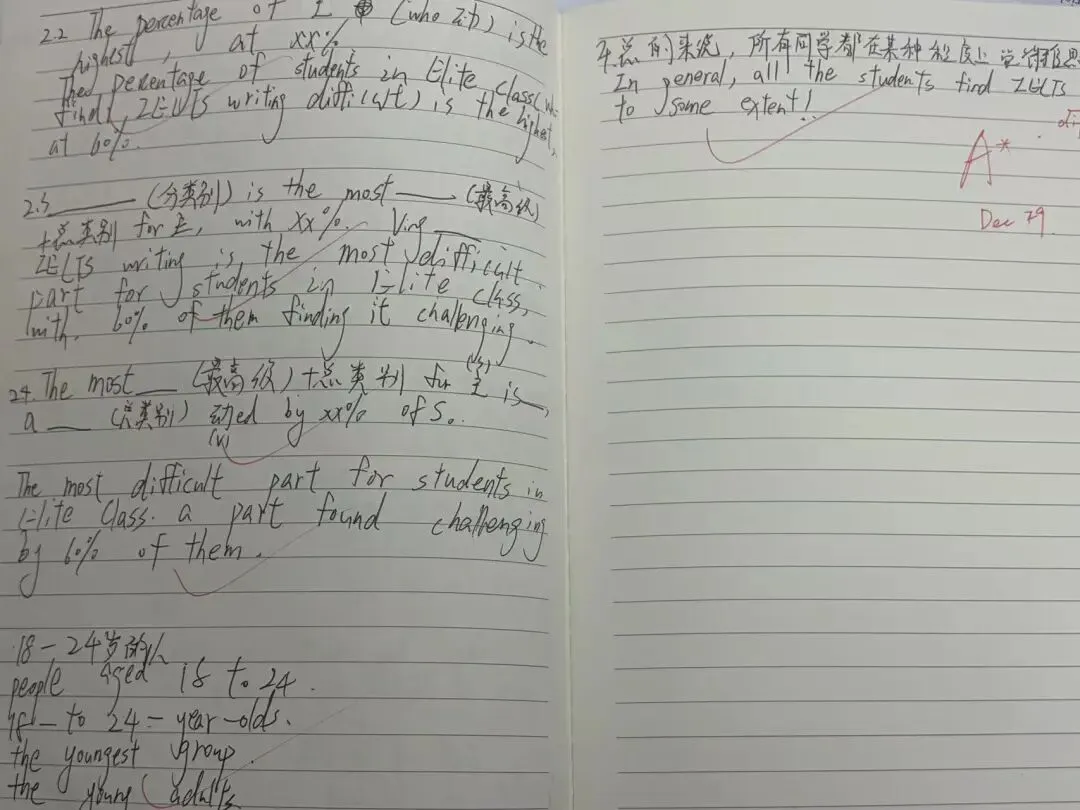 2.2 The percentage of 主 (who 动) is the
highest, at xx%.
The percentage of students in Elite class (who
find IELTS writing difficult) is the highest,
at 60%.
2.3 ____ (分类别) is the most ____ (最高级)
+总类别 for 主, with xx% Ving ____
IELTS writing is the most difficult
part for students in Elite class,
with 60% of them finding it challenging.
2.4. The most ___ (最高级) +总类别 for 主 is __,
a ___ (总类别)动ed by xx% of S.
The most difficult part for students in
Elite Class. a part found challenging
by 60% of them.
18-24岁的人
people aged 18 to 24.
18- to 24-year-olds.
the youngest group
the young adults
总的来说, 所有同学都在某种程度上觉得雅思
In general, all the students find IELTS
to some extent!
A*
Dec 29